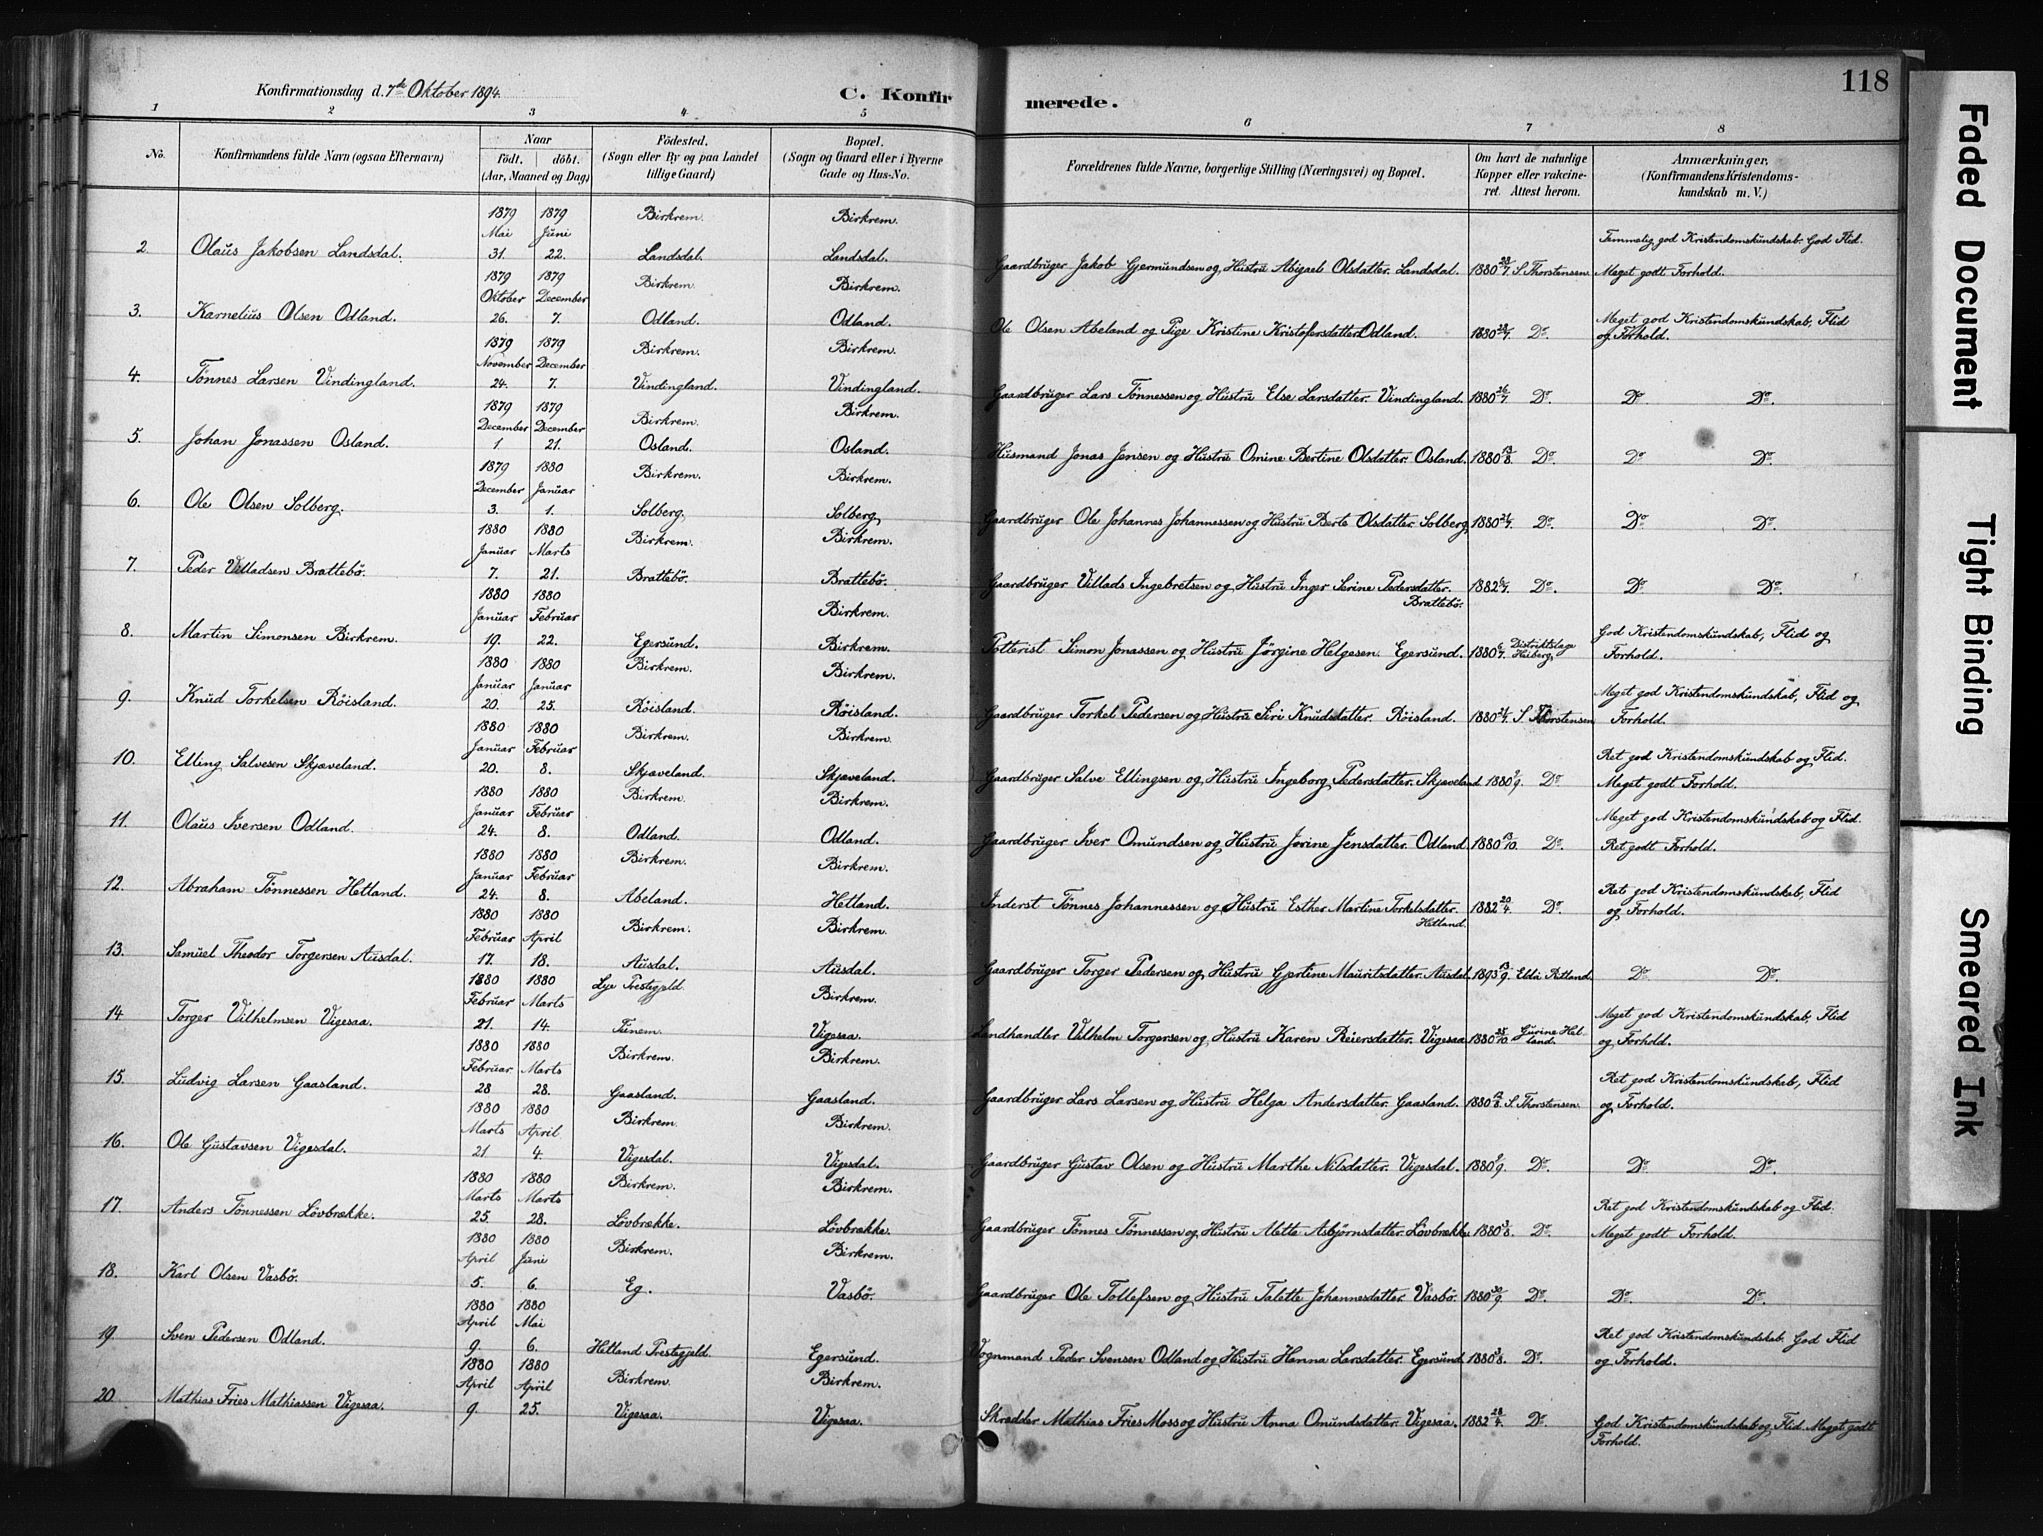 Konfirmationsdag d. 7de Oktober 1894.
C. Konfirmerede.
118
1 2 3 4 5 6 7 8
No.
Konfirmandens fulde Navn (ogsaa Efternavn)
Naar
födt. döbt.
(Aar, Maaned og Dag)
Födested.
(Sogn eller By og paa Landet tillige Gaard)
Bopæl.
(Sogn og Gaard eller i Byerne Gade og Hus-No.
Forældrenes fulde Navne, borgerlige Stilling (Næringsvei) og Bopæl.
Om havt de naturlige Kopper eller vakcineret. Attest herom.
Anmærkninger.
(Konfirmandens Kristendomskundskab m. V.)
1879 Mai 1879 Juni Birkrem. Birkrem.
2. Olaus Jakobsen Landsdal. 31. 22. Landsdal. Landsdal. Gaardbruger Jakob Gjermundsen og Hustru Abigael Olsdatter. Landsdal. 1880 28/7. S. Thorstensen. Temmelig god Kristendomskundskab. God Flid. Meget godt Forhold.
1879 Oktober 1879 December Birkrem. Birkrem.
3. Karnelius Olsen Odland. 26. 7. Odland. Odland. Ole Olsen Abeland og Pige Kristine Kristofersdatter Odland. 1880 28/7. Do. Meget god Kristendomskundskab, Flid og Forhold.
1879 November 1879 December Birkrem. Birkrem.
4. Tönnes Larsen Vindingland. 24. 7. Vindingland. Vindingland. Gaardbruger Lars Tönnessen og Hustru Else Larsdatter. Vindingland. 1880 26/7. Do. Do. Do.
1879 December 1879 December Birkrem. Birkrem.
5. Johan Jonassen Osland. 1. 21. Osland. Osland. Husmand Jonas Jensen og Hustru Omine Bertine Olsdatter. Osland. 1880 13/8. Do. Do. Do.
1879 December 1880 Januar Birkrem. Birkrem.
6. Ole Olsen Solberg. 3. 1. Solberg. Solberg. Gaardbruger Ole Johannes Johannessen og Hustru Berte Olsdatter. Solberg. 1880 21/7. Do. Do. Do.
1880 Januar 1880 Marts Birkrem. Birkrem.
7. Peder Villadsen Brattebö. 7. 21. Brattebö. Brattebö. Gaardbruger Villads Ingebretsen og Hustru Inger Serine Pedersdatter. Brattebö. 1882 6/7. Do. Do. Do.
1880 Januar 1880 Februar Birkrem.
8. Martin Simonsen Birkrem. 19. 22. Egersund. Birkrem. Potterist Simon Jonassen og Hustru Jörgine Helgesen. Egersund. 1880 6/7. Distriktslæge Heiberg. God Kristendomskundskab, Flid og Forhold.
1880 Januar 1880 Januar Birkrem. Birkrem.
9. Knud Torkelsen Röisland. 20. 25. Röisland. Röisland. Gaardbruger Torkel Pedersen og Hustru Siri Knudsdatter. Röisland. 1880 21/7. S. Thorstensen Meget god Kristendomskundskab, Flid og Forhold.
1880 Januar 1880 Februar Birkrem. Birkrem.
10. Elling Salvesen Skjæveland. 20. 8. Skjæveland. Skjæveland. Gaardbruger Salve Ellingsen og Hustru Ingeborg Pedersdatter. Skjæveland 1880 2/9. Do. Ret god Kristendomskundskab og Flid. Meget godt Forhold.
1880 Januar 1880 Februar Birkrem. Birkrem.
11. Olaus Iversen Odland. 24. 8. Odland. Odland. Gaardbruger Iver Omundsen og Hustru Jorine Jensdatter. Odland. 1880 13/10. Do. Meget god Kristendomskundskab og Flid. Ret godt Forhold.
1880 Januar 1880 Februar Birkrem. Birkrem.
12. Abraham Tönnessen Hetland. 24. 8. Abeland. Hetland. Inderst Tönnes Johannessen og Hustru Esther Martine Torkelsdatter. Hetland. 1882 20/4. Do. Ret god Kristendomskundskab, Flid og Forhold.
1880 Februar 1880 April Birkrem. Birkrem.
13. Samuel Theodor Torgersen Ausdal. 17. 18. Ausdal. Ausdal. Gaardbruger Torger Pedersen og Hustru Gjertine Mauritsdatter. Ausdal. 1893 13/9. Do. Do.
1880 Februar 1880 Marts Lye Prestegjeld. Birkrem.
14. Torger Vilhelmsen Vigesaa. 21. 14. Tunem. Vigesaa. Landhandler Vilhelm Torgersen og Hustru Karen Reiersdatter. Vigesaa. 1880 25/10. Gurine Helland. Meget god Kristendomskundskab, Flid og Forhold.
1880 Februar 1880 Marts Birkrem. Birkrem.
15. Ludvig Larsen Gaasland. 28 28. Gaasland. Gaasland. Gaardbruger Lars Larsen og Hustru Helga Andersdatter. Gaasland. 1880 12/8. S. Thorstensen. Ret god Kristendomskundskab, Flid og Forhold.
1880 Marts 1880 April Birkrem. Birkrem.
16. Ole Gustavsen Vigesdal. 21 4. Vigesdal. Vigesdal. Gaardbruger Gustav Olsen og Hustru Marthe Nilsdatter. Vigesdal. 1880 2/9. Do. Do. Do.
1880 Marts 1880 Marts Birkrem. Birkrem.
17. Anders Tönnessen Lövbrække. 25. 28. Lövbrække. Lövbrække. Gaardbruger Tönnes Tönnessen og Hustru Mette Asbjörnsdatter. Lövbrække 1880 3/8. Do. Ret god Kristendomskundskab og Flid. Meget godt Forhold.
1880 April 1880 Juni Birkrem. Birkrem.
18. Karl Olsen Vasbö. 5. 6. Eg. Vasbö. Gaardbruger Ole Tollefsen og Hustru Talette Johannesdatter. Vasbö. 1880 30/9. Do. Do. Do.
1880 April 1880 Mai
19. Sven Pedersen Odland. 9. 6. Hetland Prestegjeld. Egersund. Vognmand Peder Svensen Odland og Hustru Hanna Larsdatter. Egersund. 1880 3/8. Do. Ret god Kristendomskundskab. God Flid og Forhold.
1880 April 1880 April Birkrem. Birkrem.
20. Mathias Fries Mathiassen Vigesaa. 9. 25. Vigesaa. Vigesaa. Skrædder Mathias Fries Moss og Hustru Anna Omundsdatter. Vigesaa. 1882 28/4. Do God Kristendomskundskab og Flid. Meget godt Forhold.
Faded Document
Tight Binding
Smeared Ink